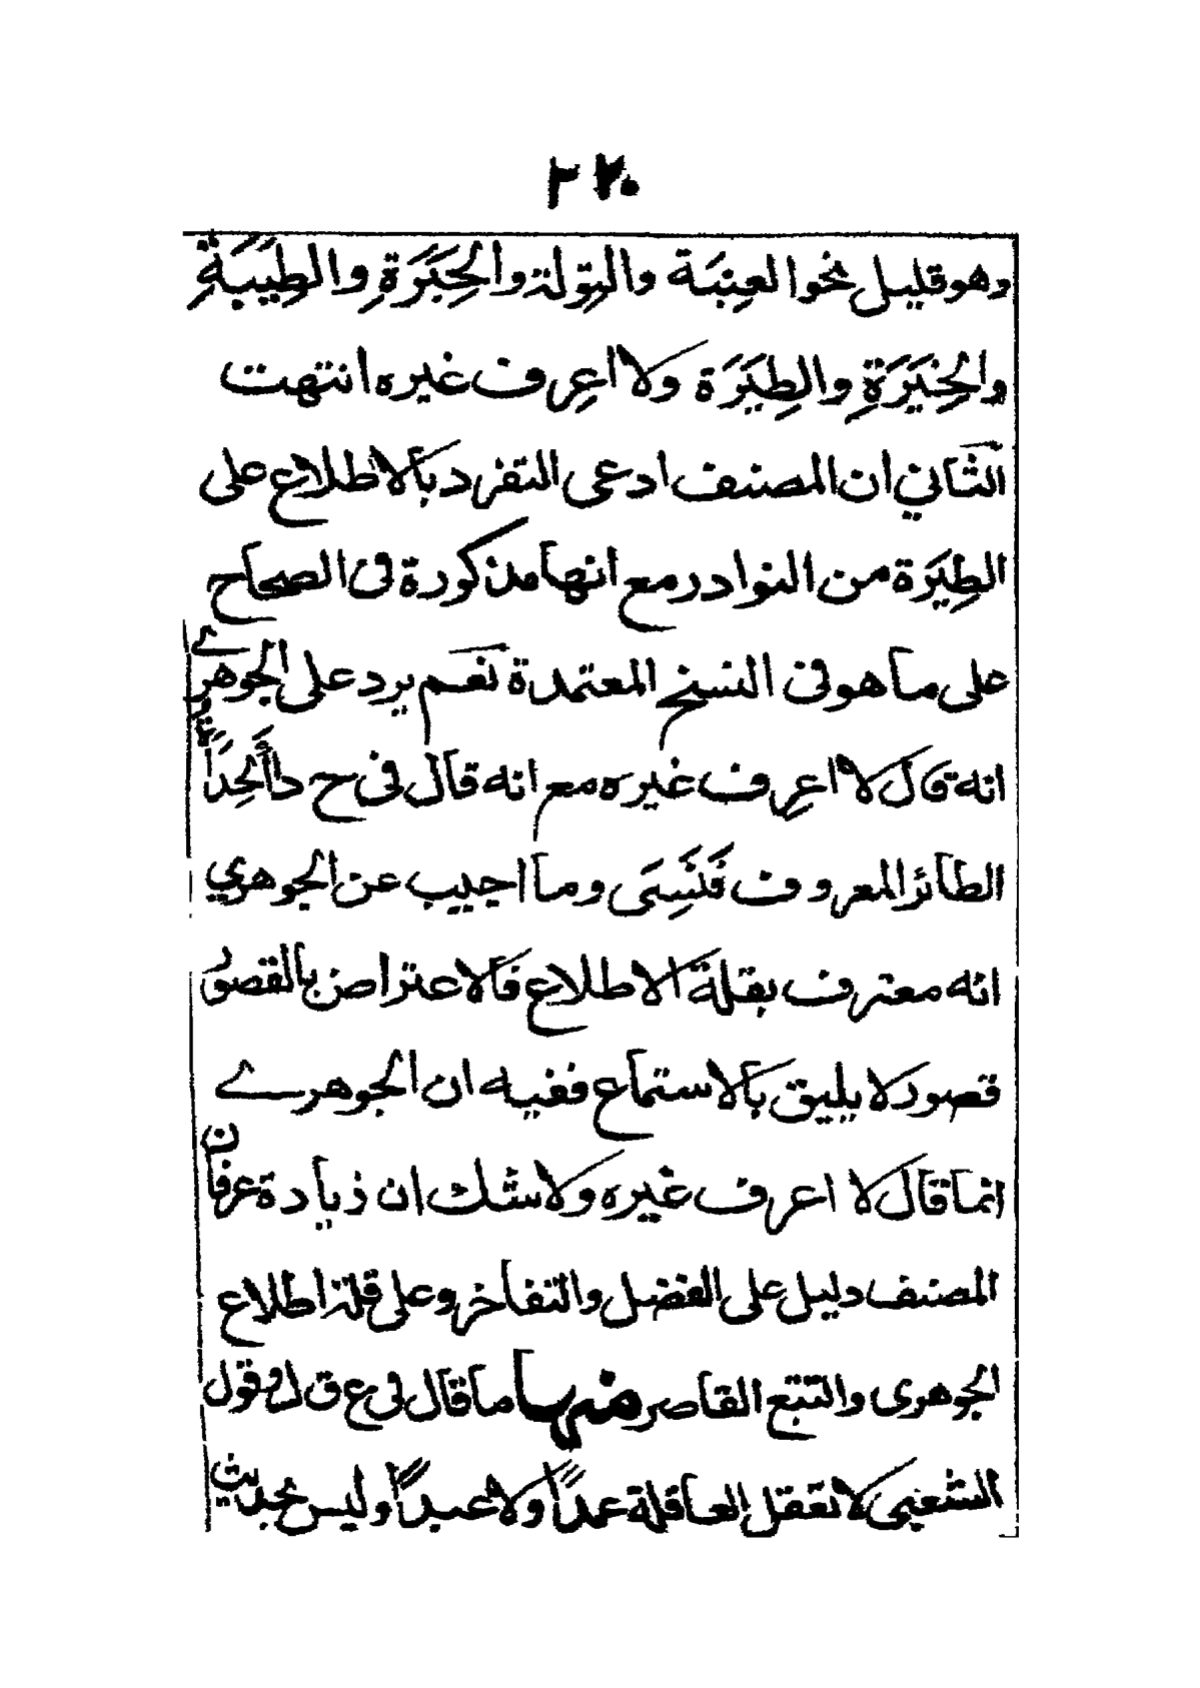 ٣٢٠
وهو قليل نحو العِنَبَة والتِوَلة والحِبَرَةِ والطِيَبَةِ
والخِيَرَةِ والطِيَرَة ولا اعرف غيره انتهت
الثاني ان المصنف ادعى التفرد بالاطلاع على
الطِيَرَة من النوادر مع انها مذكورة فى الصحاح
على ما هو فى النسخ المعتمدة نعم يرد على الجوهرے
انه قال لا اعرف غيره مع انه قال فى ح دأ الحِدَأَة
الطائر المعروف فَنَسِىَ وما اجيب عن الجوهري
انه معترف بقلة الاطلاع فالاعتراض بالقصور
قصور لا يليق بالاستماع ففيه ان الجوهرے
انما قال لا اعرف غيره ولا شك ان زيادة عرفان
المصنف دليل على الفضل والتفاخر وعلى قلة اطلاع
الجوهرى والتتبع القاصر منها ما قال فى ع ق ل وقول
الشعبى لا تعقل العاقلة عمداً ولا عبداً وليس بحديث